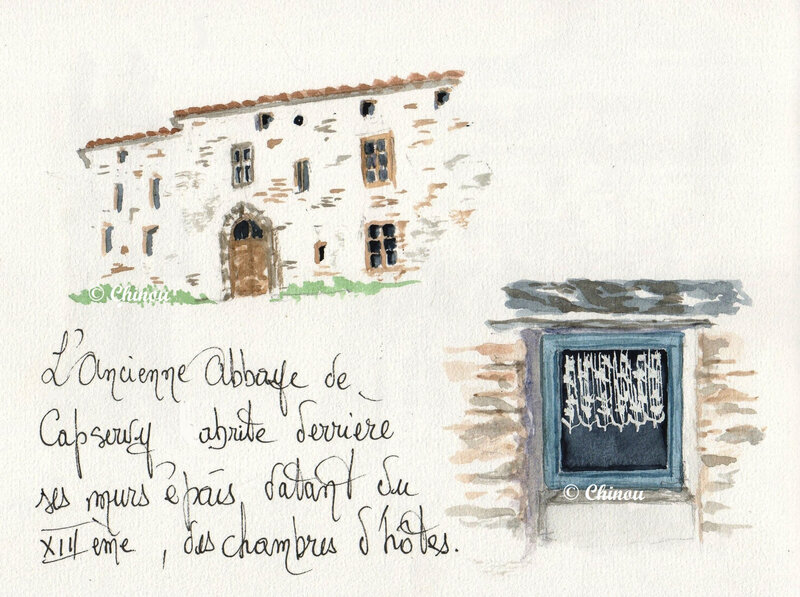 © Chinou
L'Ancienne Abbaye de
Capservy abrite derrière
ses murs épais, datant du
XIIIème, des chambres d'hôtes.
© Chinou